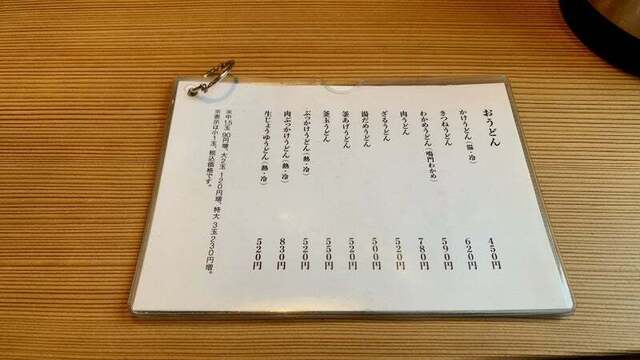 おうどん
かけうどん（温・冷） 450円
きつねうどん 620円
わかめうどん（鳴門わかめ） 590円
肉うどん 780円
ざるうどん 520円
湯だめうどん 500円
釜あげうどん 520円
釜玉うどん 550円
ぶっかけうどん（熱・冷） 520円
肉ぶっかけうどん（熱・冷） 830円
生じょうゆうどん（熱・冷） 520円
※中1.5玉 90円増、大2玉 120円増、特大 3玉230円増。
※表示は小1玉、税込価格です。